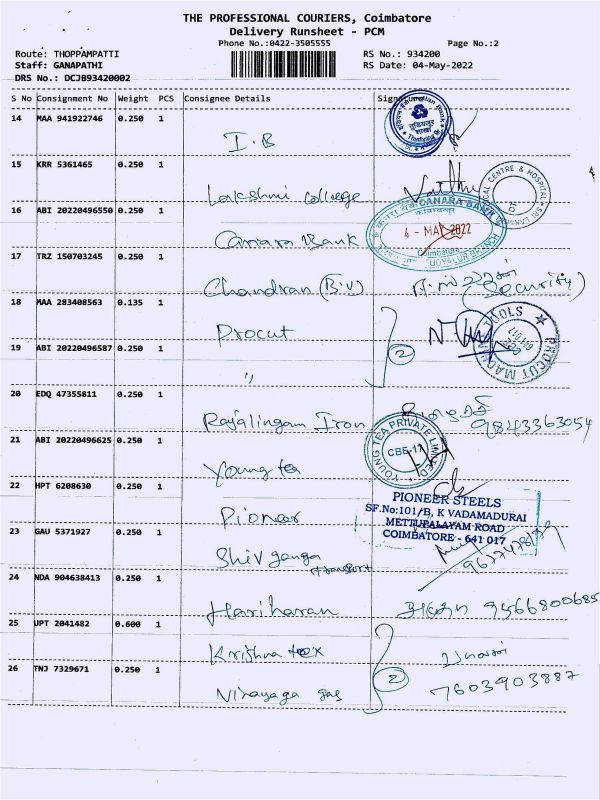 THE PROFESSIONAL COURIERS, Coimbatore
Delivery Runsheet - PCM
Phone No.:0422-3505555 Page No.:2
Route: THOPPAMPATTI RS No.: 934200
Staff: GANAPATHI RS Date: 04-May-2022
DRS No.: DCJB93420002
S No Consignment No Weight PCS Consignee Details Signature
14 MAA 941922746 0.250 1
I.B
15 KRR 5361465 0.250 1
Lakshmi College
16 ABI 20220496550 0.250 1
CANARA BANK
Canara Bank
4 - MAY 2022
Coimbatore
17 TRZ 150703245 0.250 1
Chandran (B.V) (Security)
18 MAA 283408563 0.135 1
Procut
19 ABI 20220496587 0.250 1
2
"
20 EDQ 47355811 0.250 1
Rajalingam Iron 9843363054
21 ABI 20220496625 0.250 1
YOUNG TEA PRIVATE LIMITED
CBE-17
Young tea
22 HPT 6208630 0.250 1
PIONEER STEELS
SF.No:101/B, K VADAMADURAI
Pioneer
METTUPALAYAM ROAD
23 GAU 5371927 0.250 1
COIMBATORE - 641 017
Shiv ganga
transport
24 NDA 904638413 0.250 1
Hariharan 9566800685
25 UPT 2041482 0.600 1
Krishna tex
26 TNJ 7329671 0.250 1
2
Vinayaga gas 7603903887